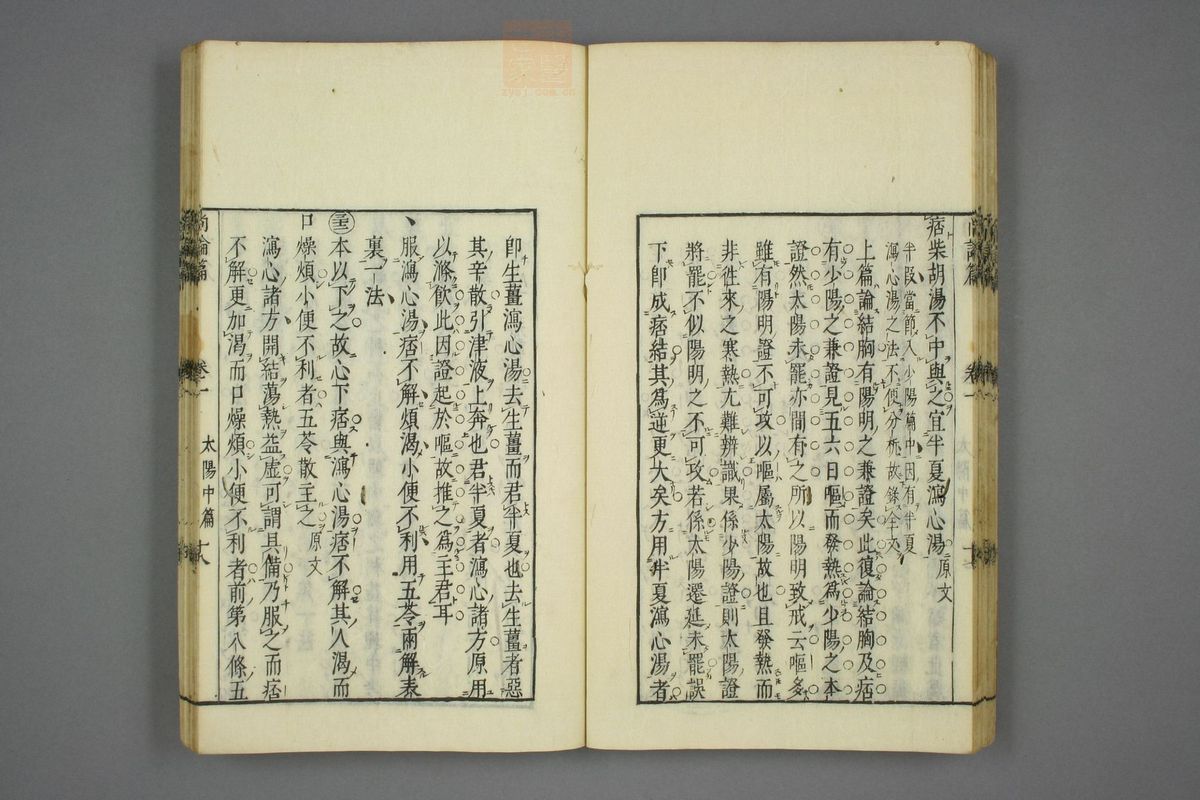 痞柴胡湯不中與之宜半夏瀉心湯 原文
半叚當節入少陽篇中因有半夏
瀉心湯之法不便分柝故錄全文
上篇論結胸有陽明之兼證矣此復論結胸及痞
有少陽之兼證見五六日嘔而發熱爲少陽之本
證然太陽未罷亦間有之所以陽明致戒云嘔多
雖有陽明證不可攻以嘔屬太陽故也且發熱而
非徃來之寒熱尤難辨識果係少陽證則太陽證
將罷不似陽明之不可攻若係太陽遷延未罷誤
下卽成痞結其爲逆更大矣方用半夏瀉心湯者
卽生薑瀉心湯去生薑而君半夏也去生薑者惡
其辛散引津液上奔也君半夏者瀉心諸方原用
以滌飲此因證起於嘔故推之爲主君耳
服瀉心湯痞不解煩渴小便不利用五苓兩解表
裏一法
本以下之故心下痞與瀉心湯痞不解其人渴而
口燥煩小便不利者五苓散主之 原文
瀉心諸方開結蕩熱益虛可謂具備乃服之而痞
不解更加渴而口燥煩小便不利者前第八條五
尚論篇 卷一 太陽中篇